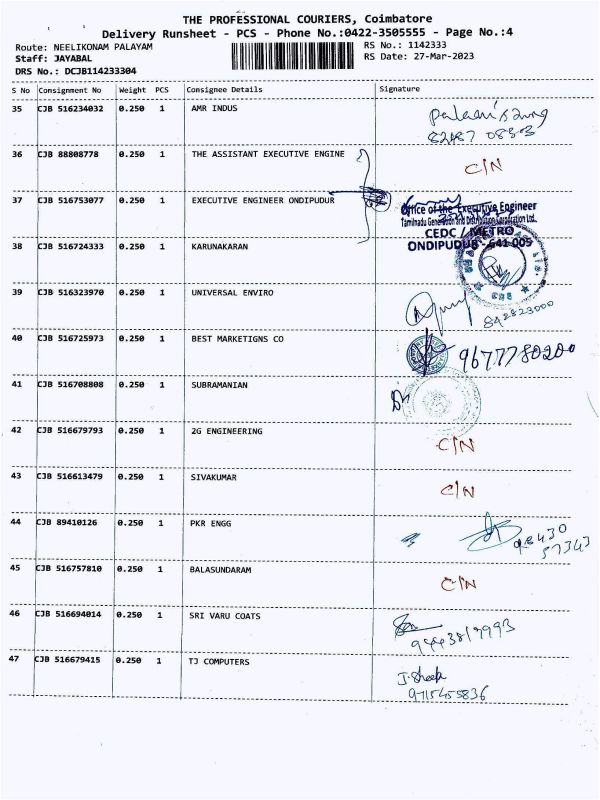 THE PROFESSIONAL COURIERS, Coimbatore
Delivery Runsheet - PCS - Phone No.:0422-3505555 - Page No.:4
Route: NEELIKONAM PALAYAM
RS No.: 1142333
Staff: JAYABAL
RS Date: 27-Mar-2023
DRS No.: DCJB114233304
S No Consignment No Weight PCS Consignee Details Signature
35 CJB 516234032 0.250 1 AMR INDUS
36 CJB 88808778 0.250 1 THE ASSISTANT EXECUTIVE ENGINE C/N
37 CJB 516753077 0.250 1 EXECUTIVE ENGINEER ONDIPUDUR
Office of the Executive Engineer
Tamilnadu Generation and Distribution Corporation Ltd.,
CEDC / METRO
ONDIPUDUR - 641 005
38 CJB 516724333 0.250 1 KARUNAKARAN
CBE
39 CJB 516323970 0.250 1 UNIVERSAL ENVIRO
842823000
40 CJB 516725973 0.250 1 BEST MARKETIGNS CO 9677780200
41 CJB 516708808 0.250 1 SUBRAMANIAN
42 CJB 516679793 0.250 1 2G ENGINEERING C/N
43 CJB 516613479 0.250 1 SIVAKUMAR C/N
44 CJB 89410126 0.250 1 PKR ENGG
98430
57343
45 CJB 516757810 0.250 1 BALASUNDARAM C/N
46 CJB 516694014 0.250 1 SRI VARU COATS
47 CJB 516679415 0.250 1 TJ COMPUTERS
9715455836